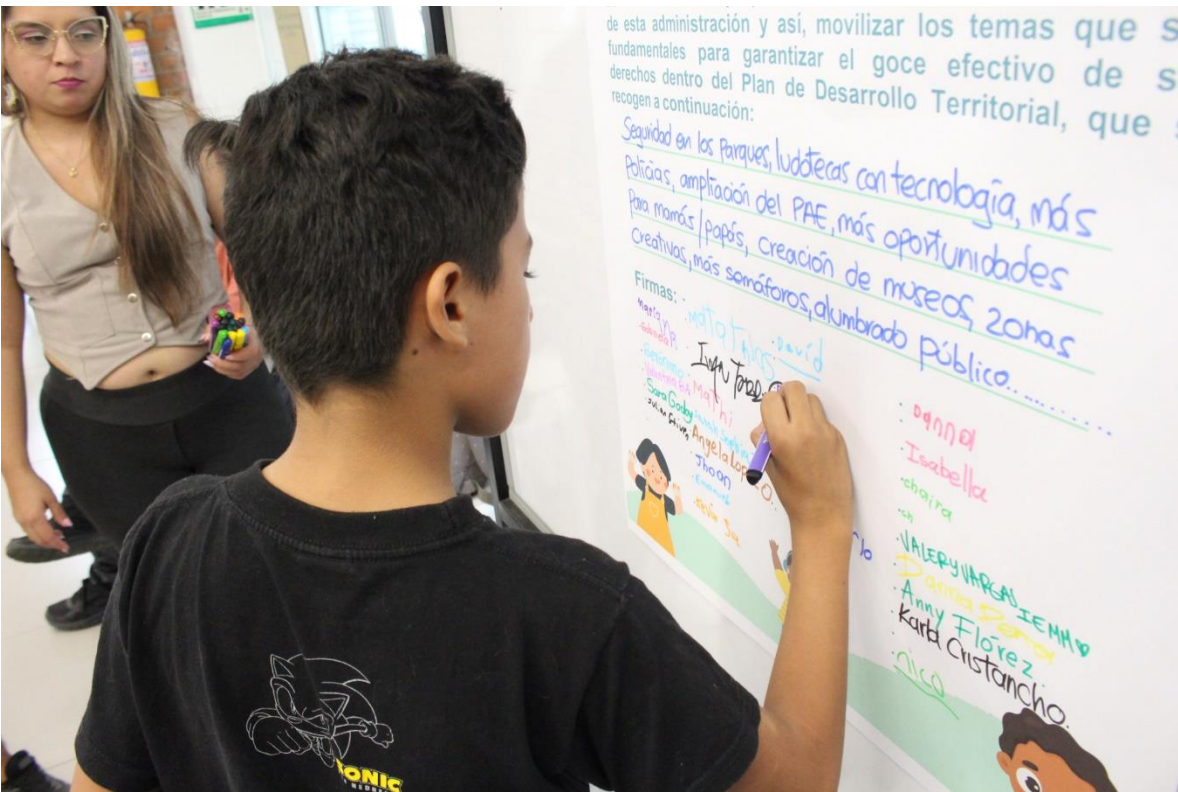 de esta administración y así, movilizar los temas que s
fundamentales para garantizar el goce efectivo de s
derechos dentro del Plan de Desarrollo Territorial, que s
recogen a continuación:
Seguridad en los Parques, ludotecas con tecnología, más
Policías, ampliación del PAE, más oportunidades
Para mamás / papás, creación de museos, zonas
Creativas, más semáforos, alumbrado público..........
Firmas:
Mariana
David
Mathi
Sara Godoy
Angela Lop
Jhoan
Danna
Isabella
chaira
ch
VALERY VARGAS IEMM
Danna
Anny Flórez
Karla Cristancho.
nico
SONIC